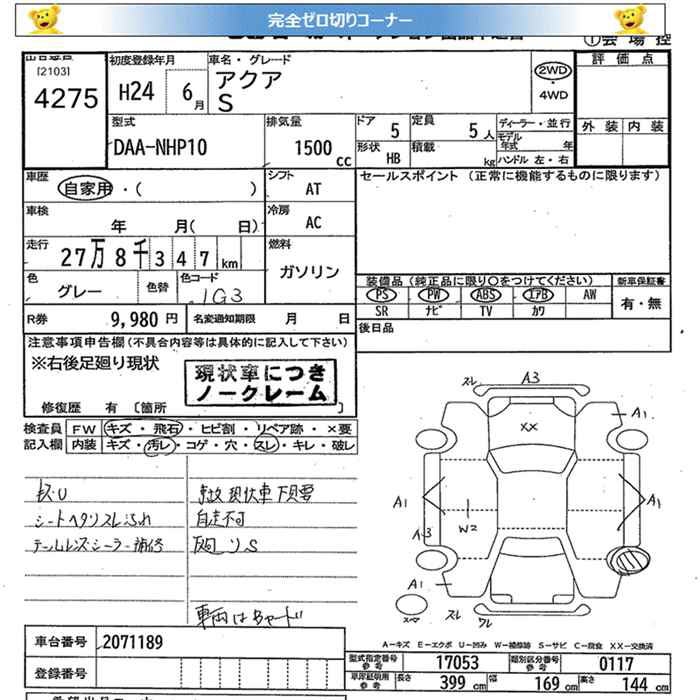 完全ゼロ切りコーナー
[2103]
4275
初度登録年月
H24 6月
車名・グレード
アクア
S
2WD
・
4WD
①会場控
評価点
外装 内装
型式
DAA-NHP10
排気量
1500cc
ドア 5
定員 5人
形状 HB
積載 kg
ディーラー・並行
モデル年式 年
ハンドル 左・右
車歴
自家用・( )
シフト AT
車検
年 月( 日)
冷房 AC
走行
27万8千347km
燃料
ガソリン
色
グレー
色替
色コード
1G3
セールスポイント (正常に機能するものに限ります)
装備品 (純正品に限り○をつけてください)
PS PW ABS エアB AW
SR ナビ TV カワ
新車保証書
有・無
後日品
R券 9,980円
名変通知期限 月 日
注意事項申告欄 (不具合内容等は具体的に記入して下さい)
※右後足廻り現状
現状車につき
ノークレーム
修復歴 有 〔箇所 〕
検査員 FW キズ・飛石・ヒビ割・リペア跡・×要
記入欄 内装 キズ・汚レ・コゲ・穴・スレ・キレ・破レ
シートヘタリスレ汚れ
テールレンズシーラー補修
事故現状車下見要
自走不可
車両はBヤード
スレ A3
A1
XX
A1
W2
A1
A3
A1
スレ
A-キズ E-エクボ U-凹み W-補修跡 S-サビ C-腐食 XX-交換済
車台番号 2071189
登録番号
型式指定番号 参考 17053
類別区分番号 参考 0117
車庫証明用 参考 長さ 399cm 幅 169cm 高さ 144cm